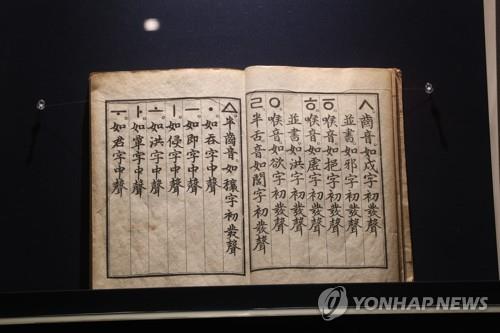 ㅅ 齒音如戌字初發聲
並書如邪字初發聲
ㆆ 喉音如挹字初發聲
ㅎ 喉音如虛字初發聲
並書如洪字初發聲
ㅇ 喉音如欲字初發聲
ㄹ 半舌音如閭字初發聲
ㅿ 半齒音如穰字初發聲
ㆍ 如呑字中聲
ㅡ 如即字中聲
ㅣ 如侵字中聲
ㅗ 如洪字中聲
ㅏ 如覃字中聲
ㅜ 如君字中聲
YONHAP NEWS